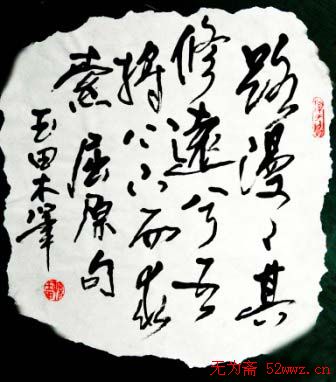 路漫々其
修遠兮吾
将上下而求
索 屈原句
玉田木
无为斋 52wwz.cn